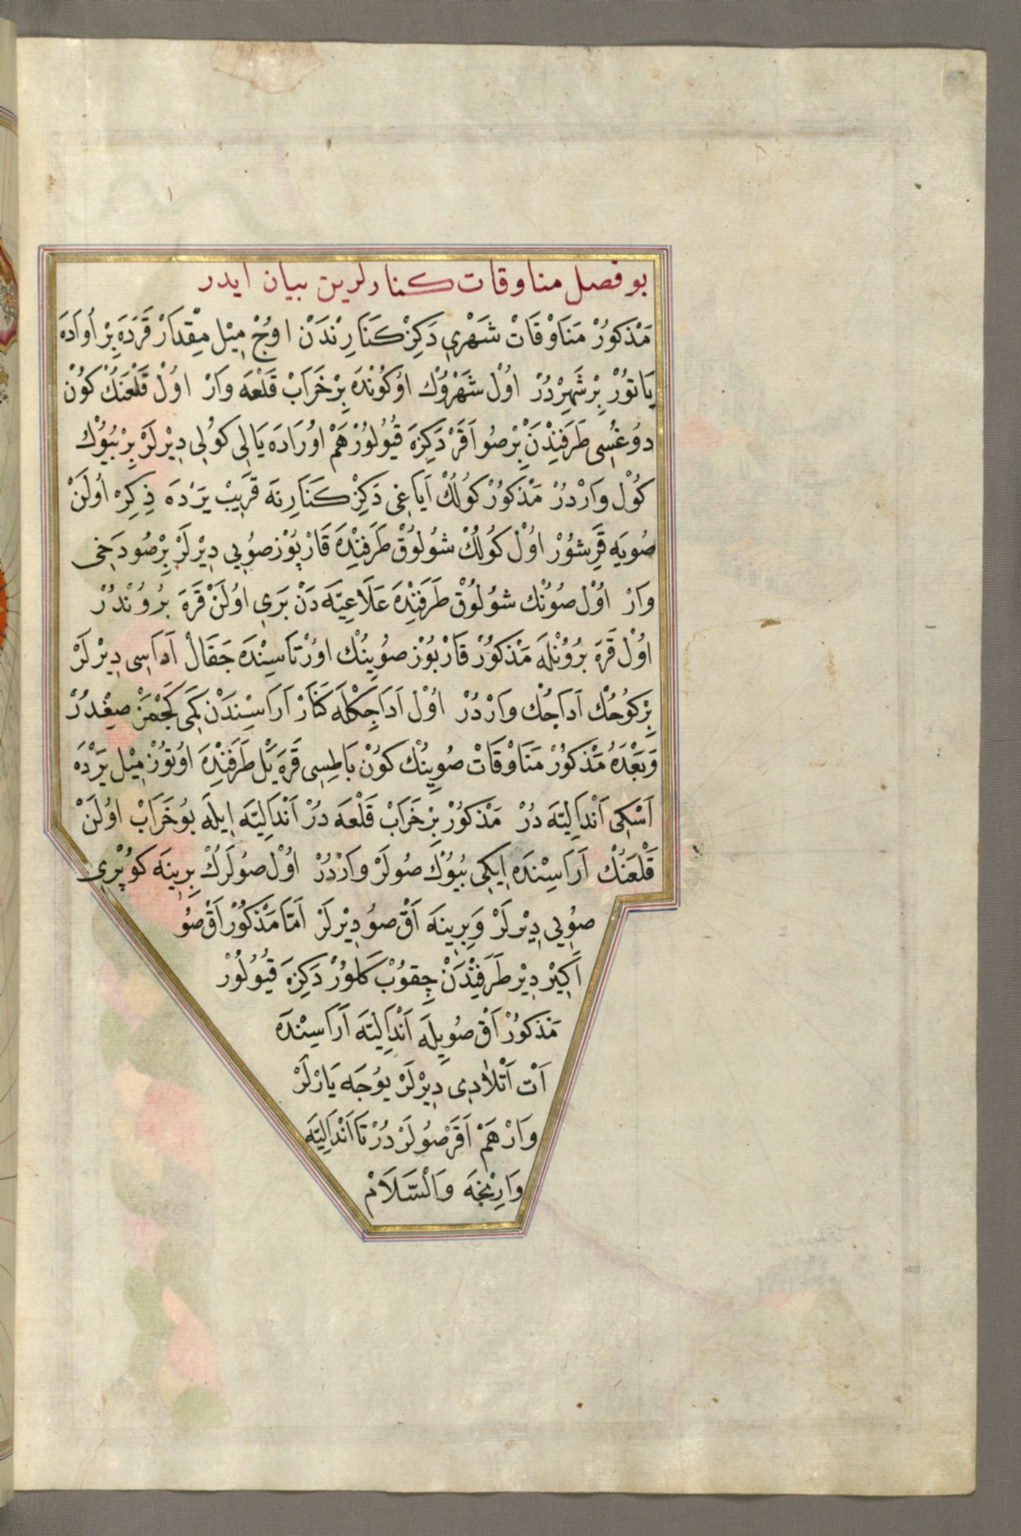 بو فصل مناوقات كنارلرين بيان ايدر
مَذْكُورْ مَنَاوْقَاتْ شَهْرِي دَكِزْ كَنَارِنْدَنْ اوُجْ مِيْل مِقْدَارْ قَرَدَه بِرْ اُوَادَه
يَاتُورْ بِرْ شَهِرْدُرْ اوُلْ شَهْرُوكْ اوُكُونْدَه بِرْ خَرَابْ قَلْعَه وَارْ اوُلْ قَلْعَنُكْ كُونْ
دوُغُسِى طَرَفِنْدَنْ بِرْ صُو اَقَرْ دَكِزَه قُيُولوُرْ هَمْ اوُرَادَه يَالِى كُولِى دِيْرلَرْ بِرْ بُيُوكْ
كُولْ وَارْدُرْ مَذْكُورْ كُولُكْ اَيَاغِى دَكِزْ كَنَارِنَه قَرِيبْ يَرْدَه ذِكِرْ اُولَنْ
صُويَه قَرِشُورْ اوُلْ كُولُكْ شُولُوقْ طَرَفِنْدَه قَارْ پُوزْ صُويِى دِيْرلَرْ بِرْ صُو دَخِى
وَارْ اوُلْ صُونُكْ شُولُوقْ طَرَفِنْدَه عَلَاعِيَّه دَنْ بَرِى اوُلَنْ قَرَه بُرُونْدُرْ
اوُلْ قَرَه بُرُونْلَه مَذْكُورْ قَارْ پُوزْ صُويِنُكْ اوُرْتَاسِنْدَه جَقَالْ اَدَاسِى دِيْرلَرْ
بِرْكُوجُكْ اَدَاجُكْ وَارْدُرْ اوُلْ اَدَاجِكْلَه كَنَارْ اَرَاسِنْدَنْ كَمِى كَجْمَزْ صِغْدُرْ
وَبَعْدَهُ مَذْكُورْ مَنَاوْقَاتْ صُويِنُكْ كُونْ بَاطِسِى قَرَه يَلْ طَرَفِنْدَه اوُتُوزْ مِيْل يَرْدَه
اَسْكِى اَنْدَالِيَه دُرْ مَذْكُورْ بِرْ خَرَابْ قَلْعَه دُرْ اَنْدَالِيَه اِيلَه بُو خَرَابْ اوُلَنْ
قَلْعَنُكْ اَرَاسِنْدَه اِيكِى بُيُوكْ صُولَرْ وَارْدُرْ اوُلْ صُولَرُكْ بِرِينَه كُوپْرِى
صُويِى دِيْرلَرْ وَبِرِينَه اَقْ صُو دِيْرلَرْ اَمَّا مَذْكُورْ اَقْ صُو
اَكِيْرْدِيْرْ طَرَفِنْدَنْ چِقُوبْ كَلُورْ دَكِزَه قُيُولُورْ
مَذْكُورْ اَقْ صُويِلَه اَنْدَالِيَه اَرَاسِنْدَه
اَتْ اَتْلَادِى دِيْرلَرْ يُوجَه يَارْلَرْ
وَارْ هَمْ اَقَرْ صُولَرْدُرْ تَا اَنْدَالِيَه
وَارِنْجَه وَالسَّلَامْ